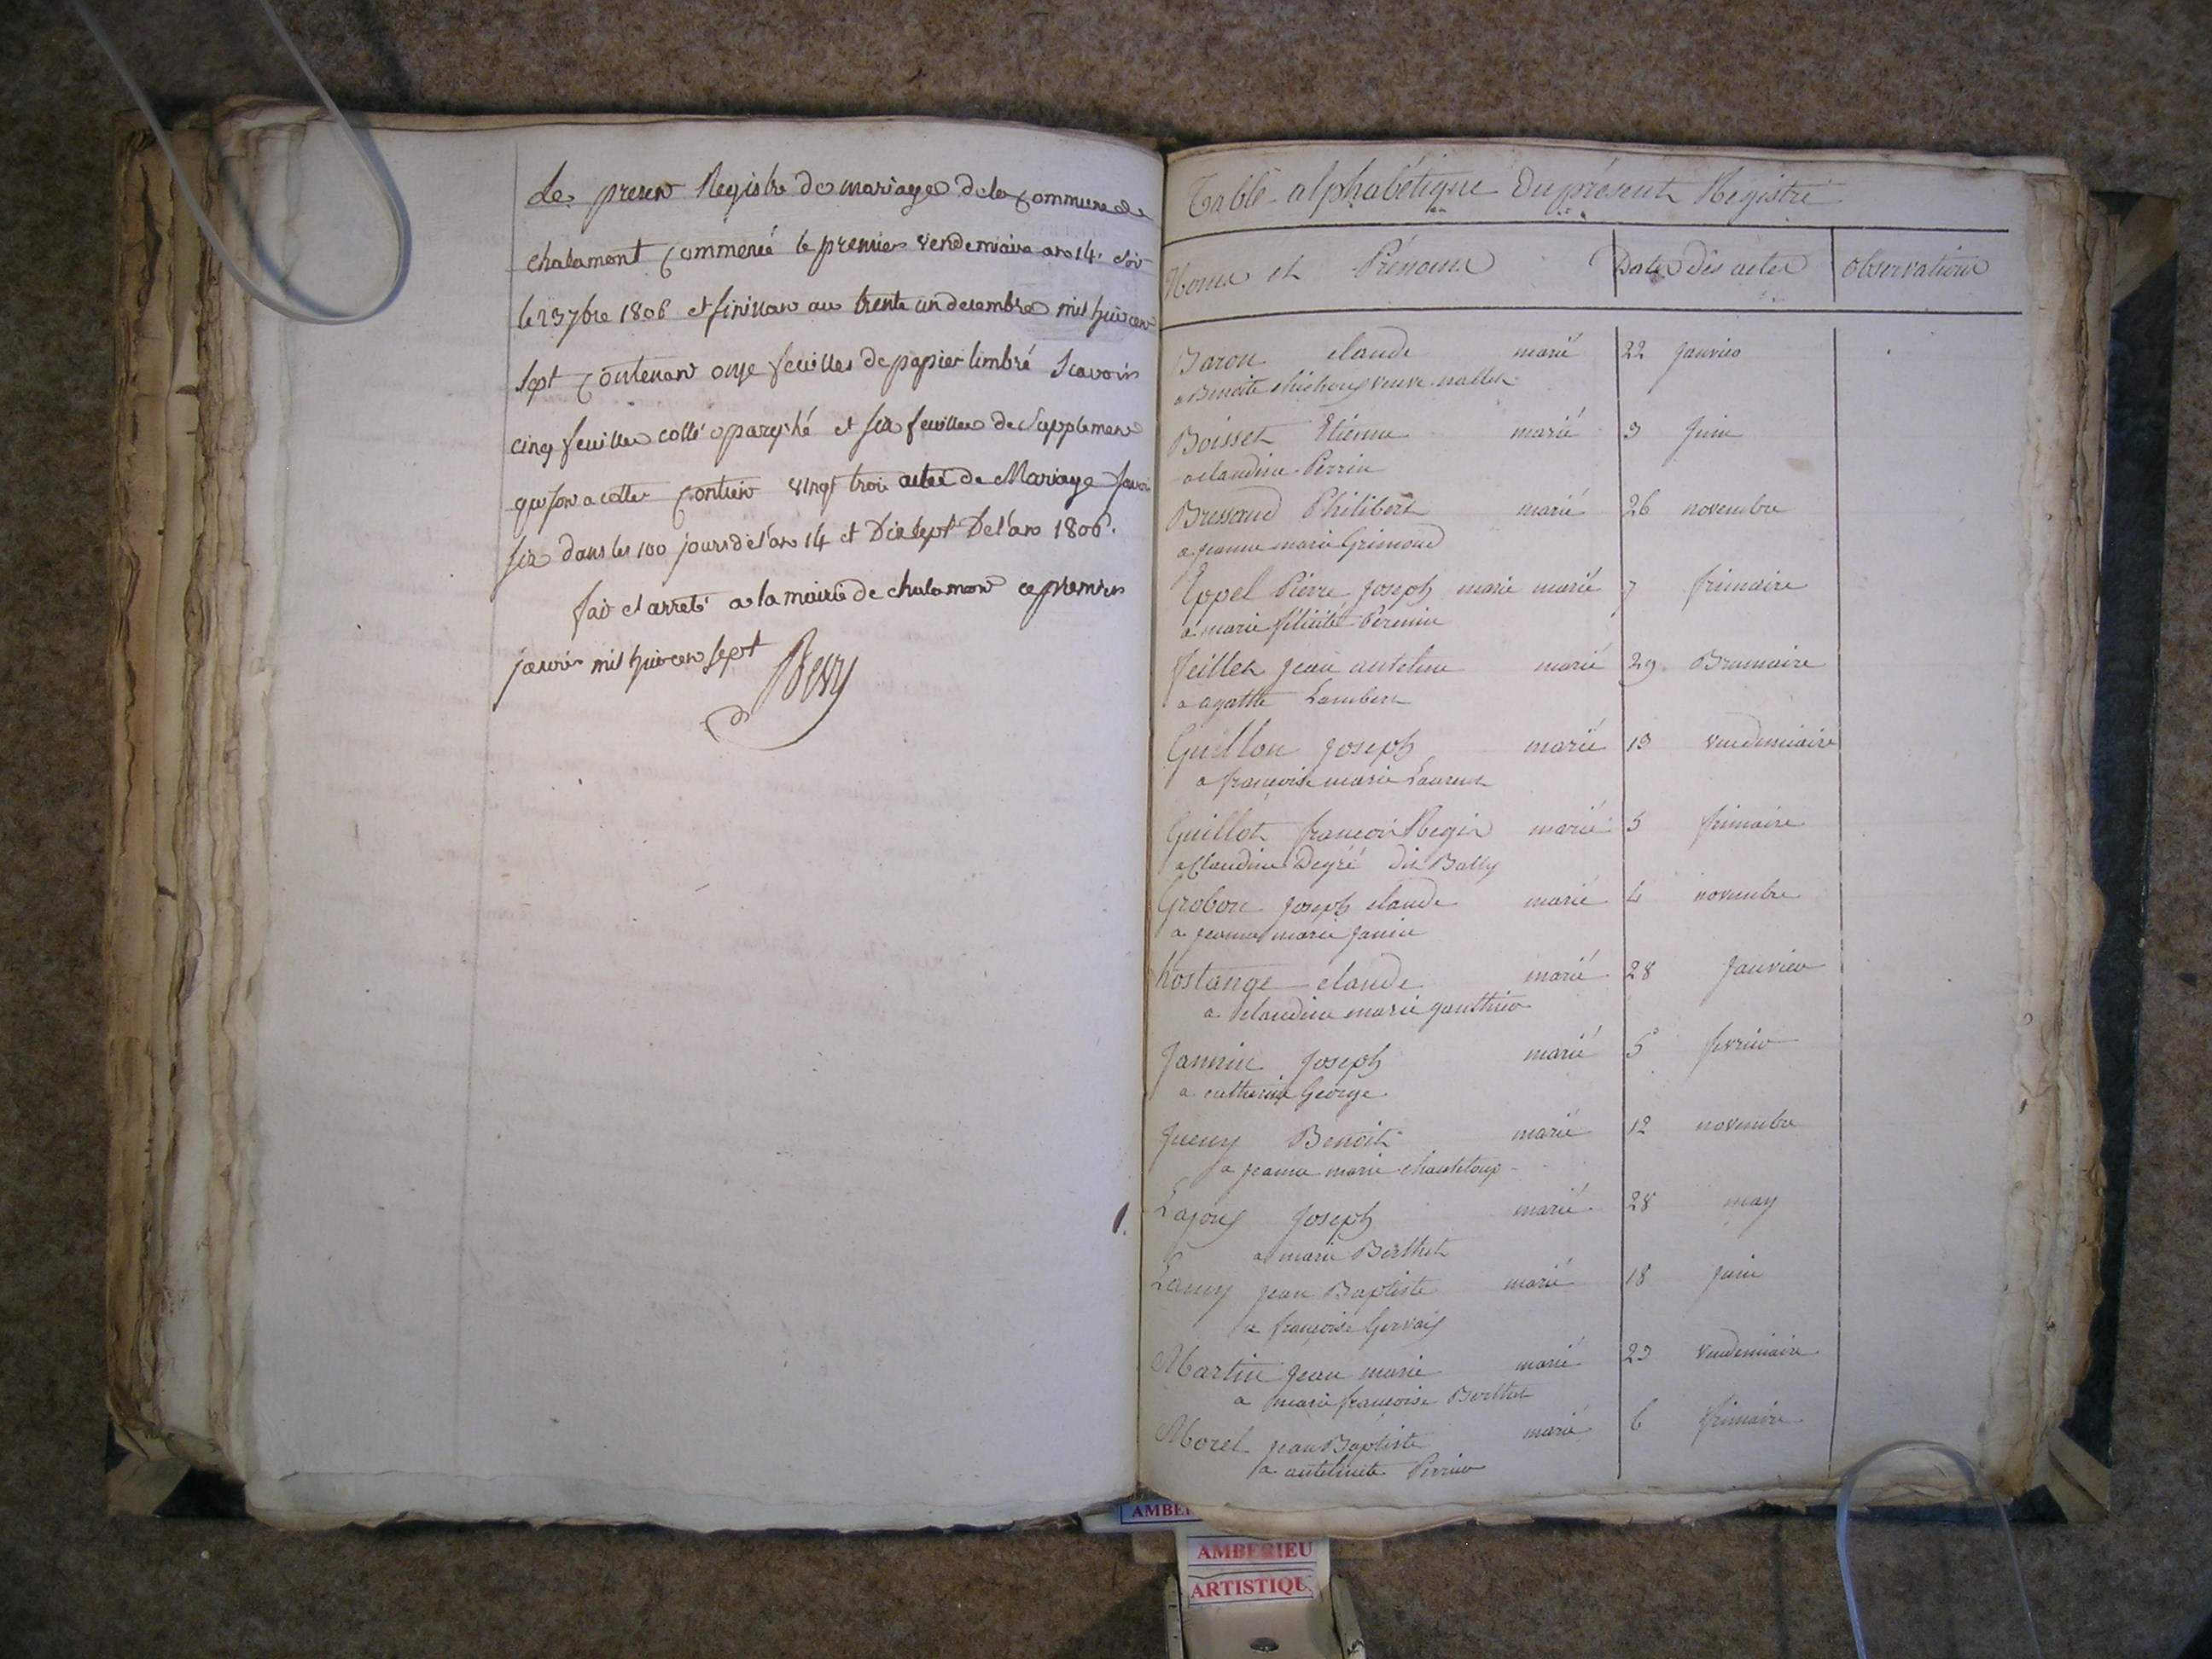 Le presen Registre de mariage de la commune de
chalamont commencé le premier vendemiaire an 14. soit
le 23 7bre 1806 et finissan au trente un decembre mil huit cen
sept contenan onze feuilles de papier timbré Scavoir
cinq feuilles collé paraphé et six feuilles de Supplemen
qui son a cotte contien vingt trois actes de Mariage
six dans les 100 jours de l'an 14 et Dix sept De l'an 1806.
fait et arreté a la mairie de chalamon ce premier
janvier mil huit cen sept
Table alphabétique du présent Registre
Noms et Prénoms Dates des actes Observations
Baron claude marié 22 Janvier
a Benoite veuve
Boisset Etienne marié 3 Juin
a claudine Perrin
Bressand Philibert marié 26 novembre
a jeanne marie Grimond
Eppel Pierre Joseph marie marié 7 frimaire
a marie félicité
Feillet jean antelme marié 29 Brumaire
a agathe Lambert
Guillon Joseph marié 13 vendemiaire
a françoise marie Laurent
Guillot françois Regis marié 5 frimaire
a Claudine Degré dit Bally
Grobon Joseph claude marié 4 novembre
a jeanne marie Janin
hostange claude marié 28 Janvier
a claudine marie gauthier
Jannin Joseph marié 5 fevrier
a catherine George
Jueny Benoit marié 12 novembre
a jeanne marie chanteloup
Lajoux Joseph marié 28 may
a marie Berthet
Lamy jean Baptiste marié 18 juin
a françoise Gervais
Martin jean marie marié 23 vendemiaire
a marie françoise Berthet
Morel jean Baptiste marié 6 frimaire
a antelmete Perrier
AMBERIEU
ARTISTIQU